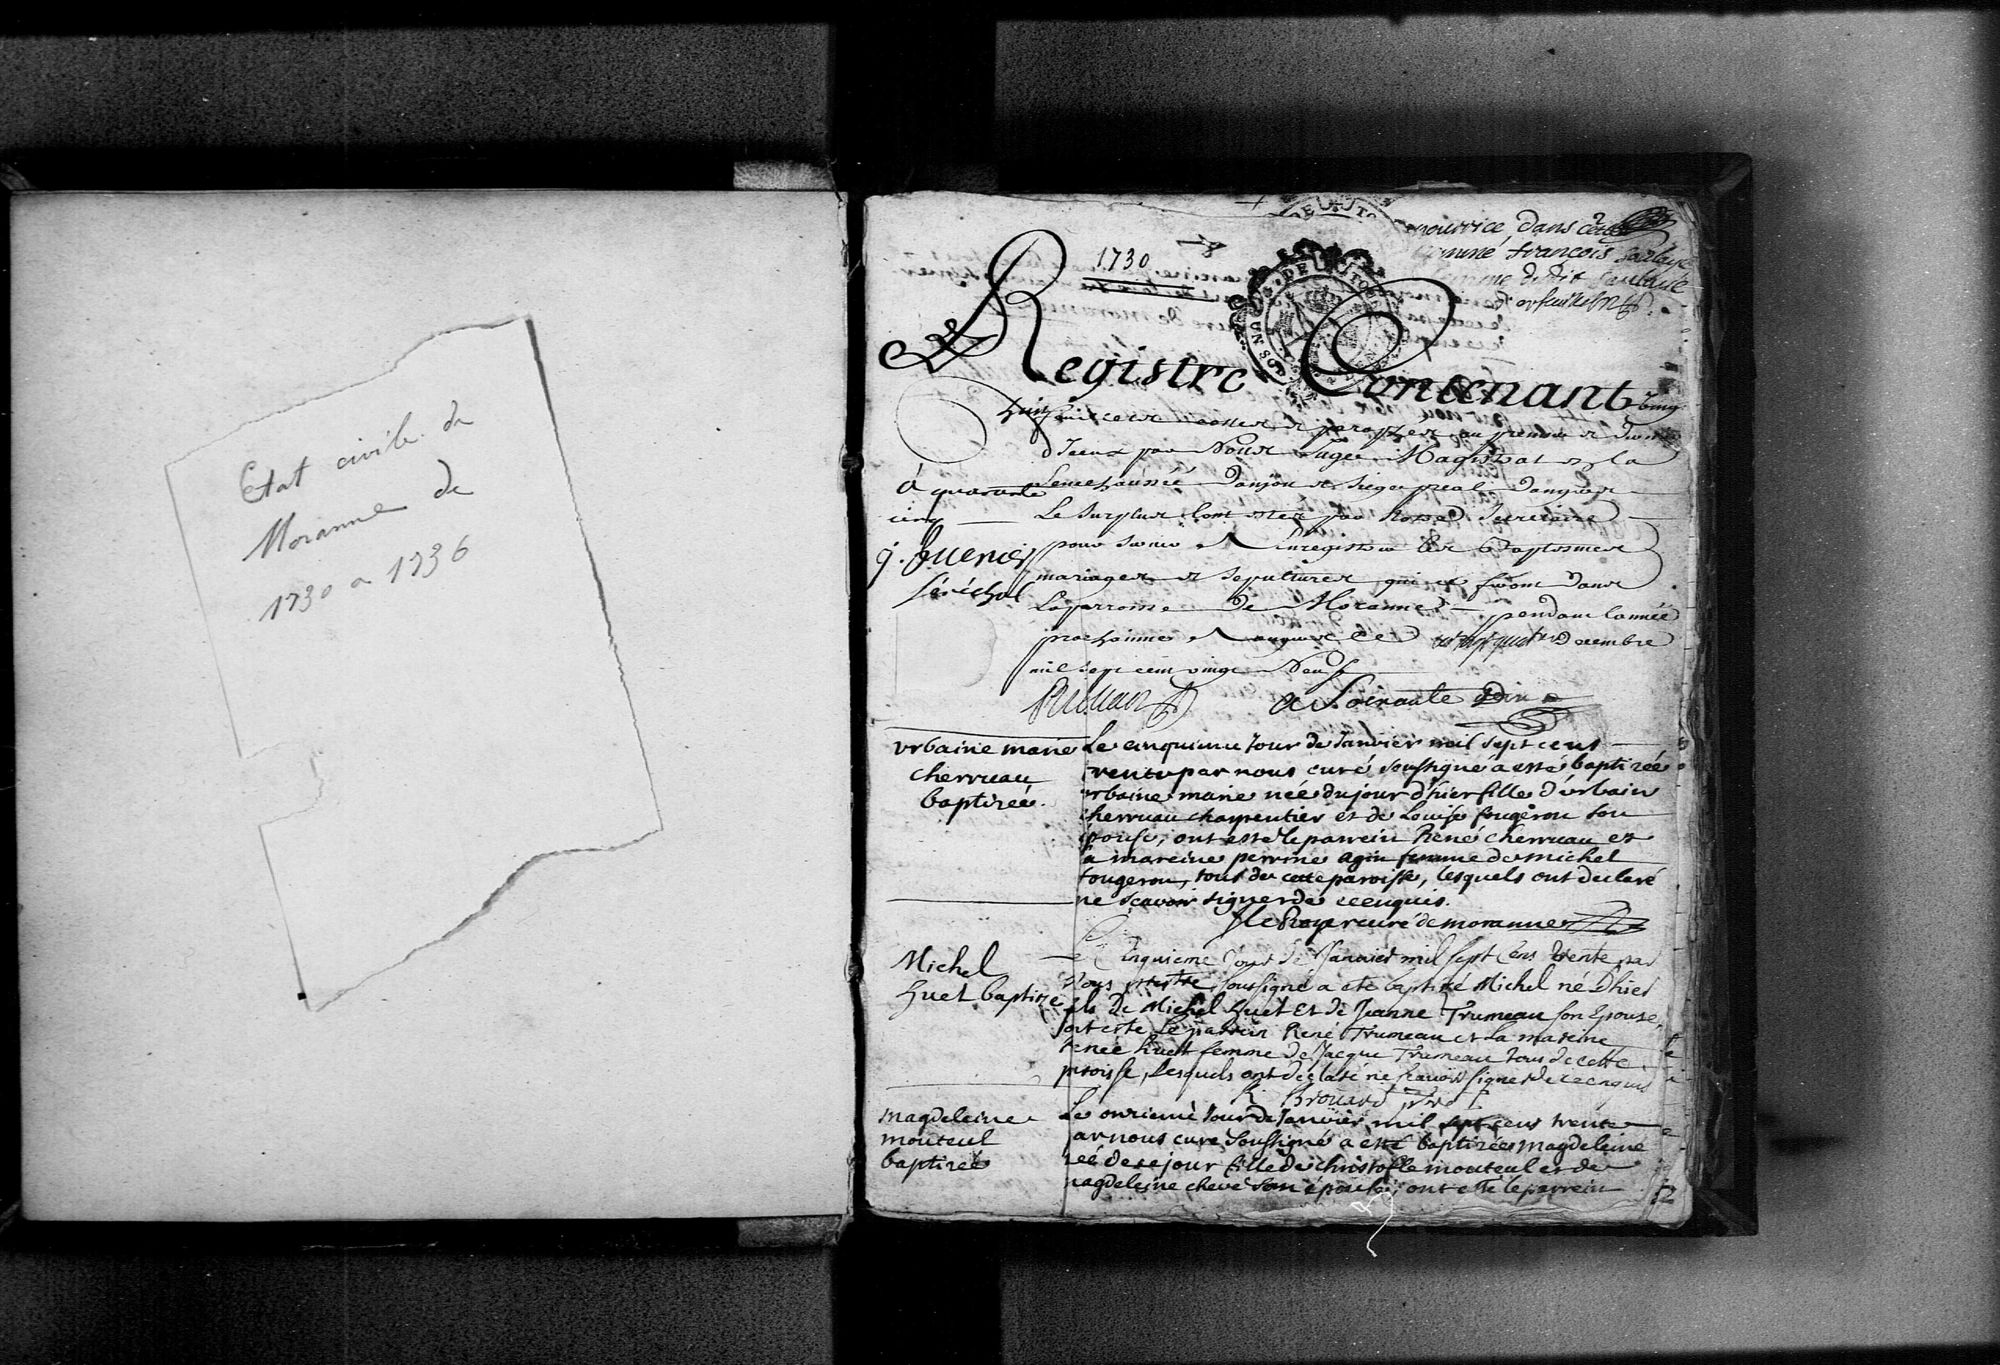 Etat civile de
Moranne de
1730 a 1736
nourrice dans
nommé françois
dudit
1730
Registre Contenant vingt
huit cottez et paraphez au premier et dernier
d'iceux par Nous Juge Magistrat en la
Senechaussée Danjou et Siege preal Dangers
Le Surplus par Notre Secretaire
pour servir a Enregistrer les Baptesmes
mariages et sepultures qui se feront dans
La parroisse De Moranne pendant lannée
prochaine A angers ce Decembre
mil sept cent vingt Neuf
à quarante
cinq
g. Guerrier
sénéchal
a Soixante Dix
urbaine marie
cherruau
baptizée.
Le cinquieme jour de Janvier mil sept cens
trente par nous curé soussigné a esté baptizée
urbaine marie née du jour d'hier fille d'urbain
cherruau charpentier et de Louise fougerou son
epouse, ont esté le parrein René cherruau et
la mareine perrine agin femme de michel
fougerou, tous de cette paroisse, lesquels ont declaré
ne scavoir signer de ce enquis.
J Le Royer curé de moranne
Michel
huet baptizé
Le Cinquieme Jour de Janvier mil sept Cens trente par
Nous prestre soussigné a eté baptizé Michel né D'hier
fils De Michel huet Et de Jeanne Trumeau son Epouse,
ont esté Le parrein René Trumeau et La mareine
renée huet femme de Jacque Trumeau tous de cette
paroisse, Lesquels ont declaré ne scavoir signer de ce enquis
Brouard ptre
magdeleine
mouteul
baptizée
Le onzieme jour de Janvier mil sept cens trente
par nous curé soussigné a esté baptizée magdeleine
née de ce jour fille de christofle mouteul et de
magdeleine chevé son épouse, ont esté le parrein